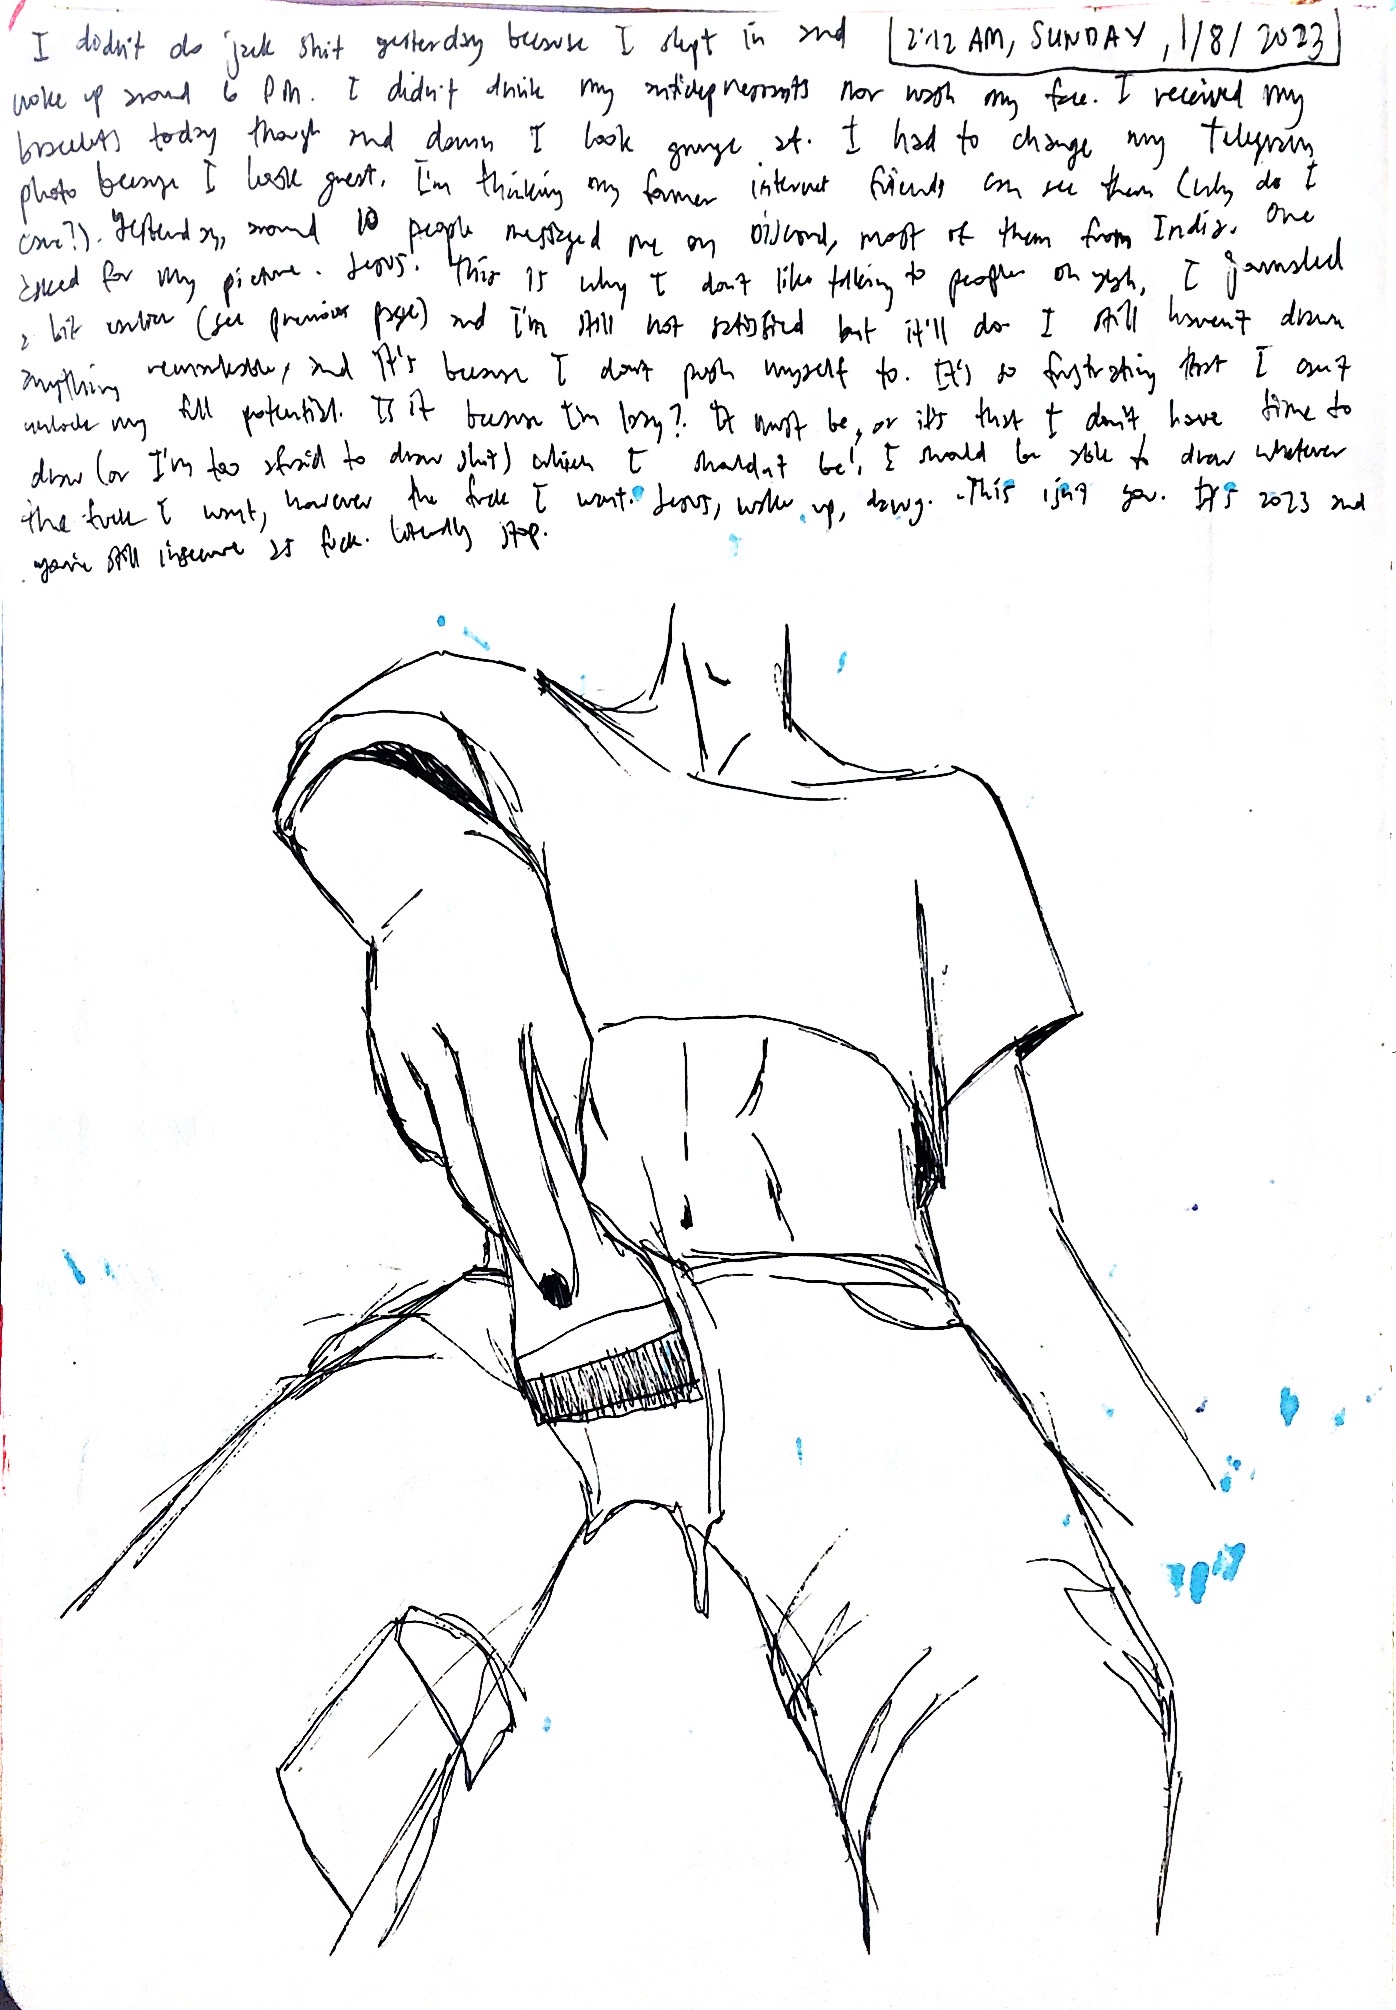 I didn't do jack shit yesterday because I slept in and
2:12 AM, SUNDAY, 1/8/2023
woke up around 6 PM. I didn't drink my antidepressants nor wash my face. I received my
bracelets today though and damn I look grunge at. I had to change my Telegram
photo because I look great. I'm thinking my former internet friends can see them (why do I
care?). Yesterday, around 10 people messaged me on Discord, most of them from India. One
asked for my picture. Jesus. This is why I don't like talking to people. Oh yeah, I journaled
a bit earlier (see previous page) and I'm still not satisfied but it'll do. I still haven't drawn
anything remarkable, and it's because I don't push myself to. It's so frustrating that I can't
unlock my full potential. Is it because I'm lazy? It must be, or it's that I don't have time to
draw (or I'm too afraid to draw shit) which I shouldn't be! I should be able to draw whatever
the fuck I want, however the fuck I want. Jesus, wake up, dawg. This isn't you. It's 2023 and
you're still insecure as fuck. Literally stop.